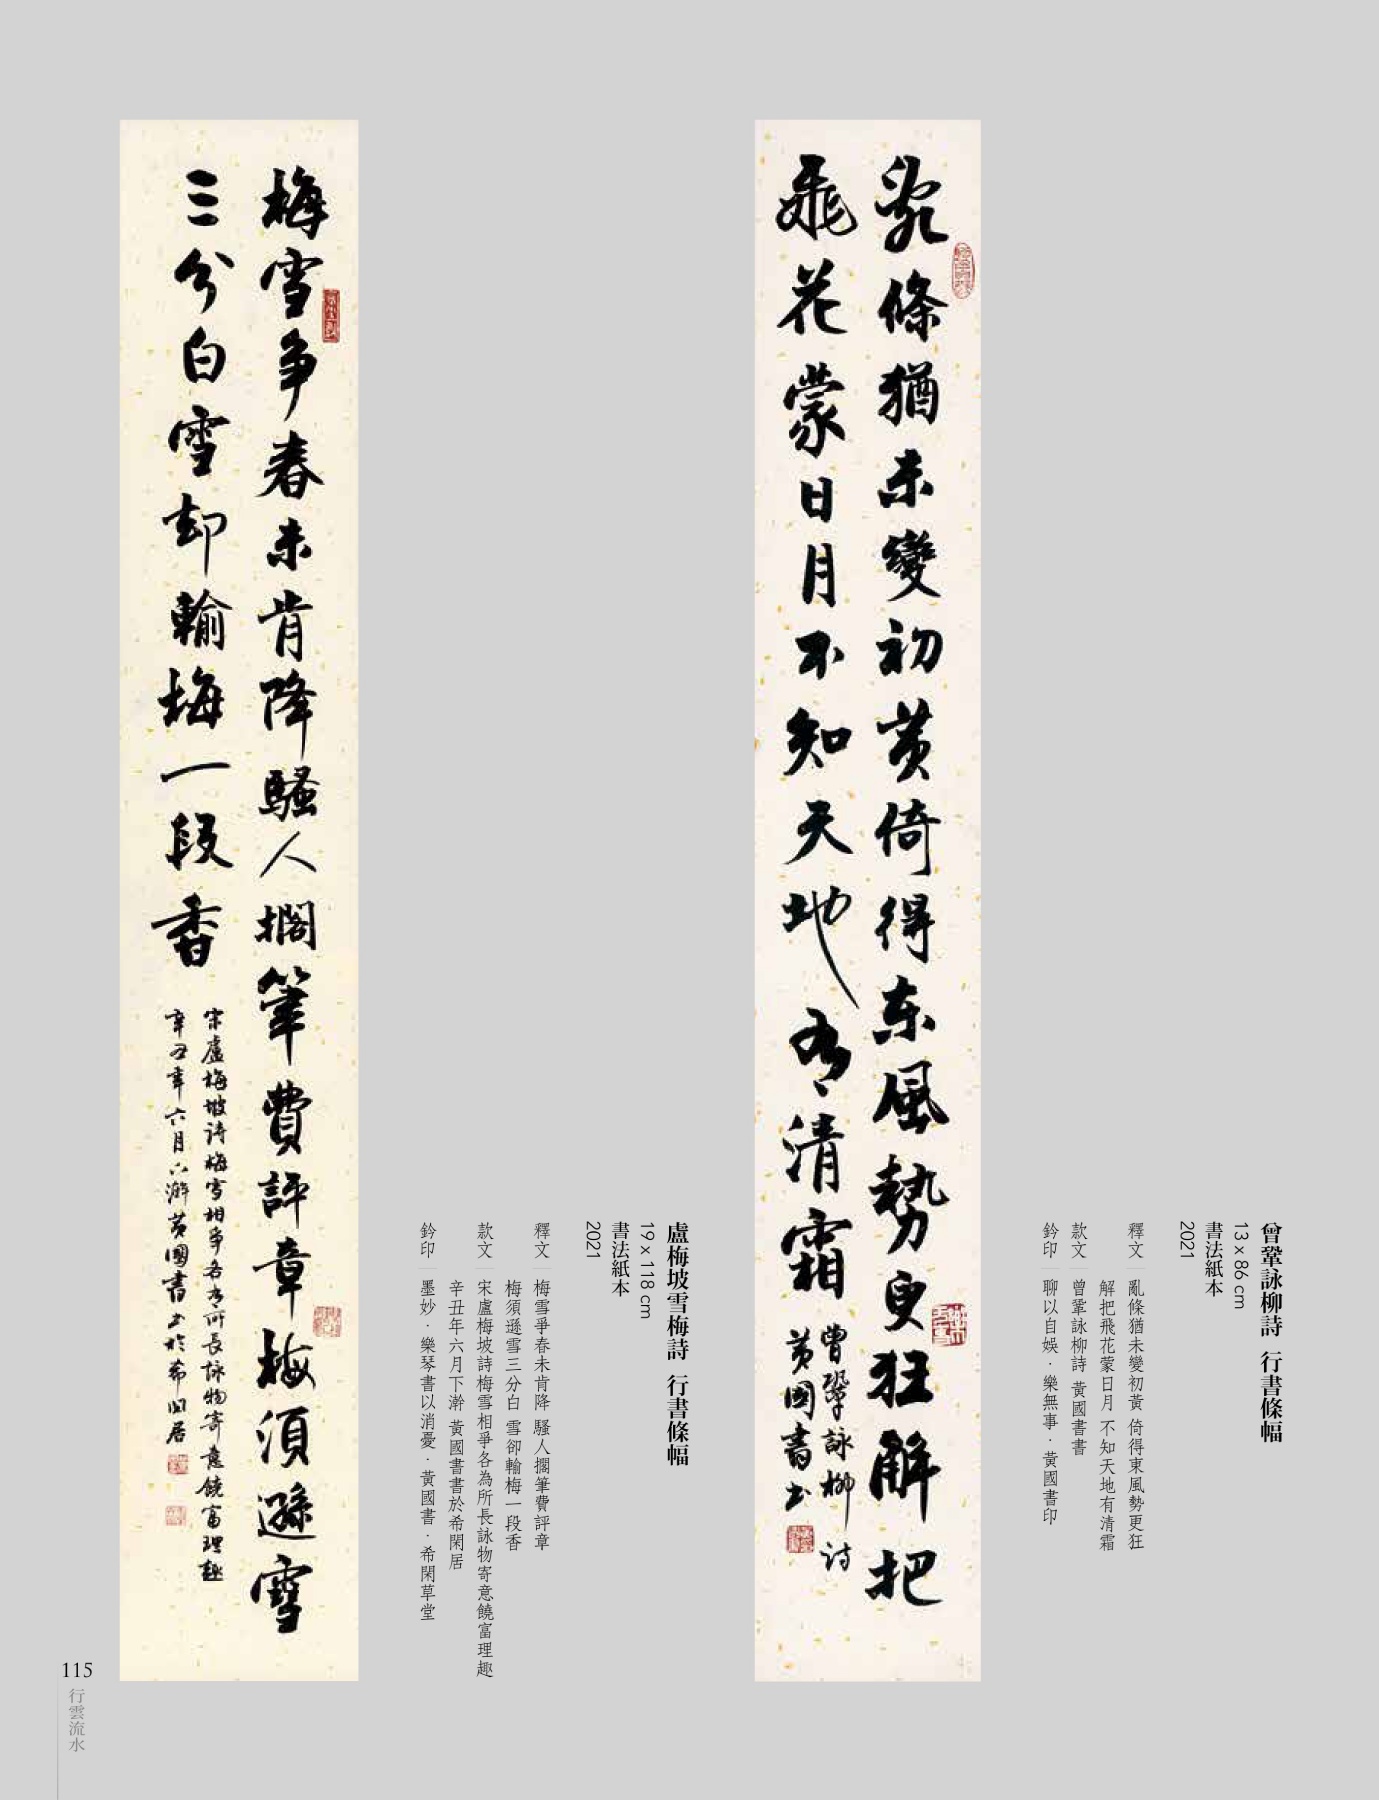 亂條猶未變初黃倚得東風勢更狂解把
飛花蒙日月不知天地有清霜
曾鞏詠柳詩
黃國書書
曾鞏詠柳詩 行書條幅
13 x 86 cm
書法紙本
2021
釋文 亂條猶未變初黃 倚得東風勢更狂
解把飛花蒙日月 不知天地有清霜
款文 曾鞏詠柳詩 黃國書書
鈐印 聊以自娛．樂無事．黃國書印
梅雪爭春未肯降騷人擱筆費評章梅須遜雪
三分白雪卻輸梅一段香
宋盧梅坡詩梅雪相爭各為所長詠物寄意饒富理趣
辛丑年六月下澣黃國書書於希閑居
盧梅坡雪梅詩 行書條幅
19 x 118 cm
書法紙本
2021
釋文 梅雪爭春未肯降 騷人擱筆費評章
梅須遜雪三分白 雪卻輸梅一段香
款文 宋盧梅坡詩梅雪相爭各為所長詠物寄意饒富理趣
辛丑年六月下澣 黃國書書於希閑居
鈐印 墨妙．樂琴書以消憂．黃國書．希閑草堂
115
行雲流水